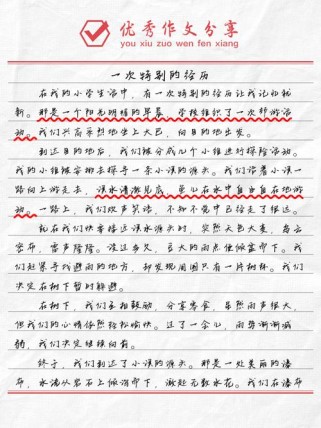 优秀作文分享
you xiu zuo wen fen xiang
一次特别的经历
在我的小学生活中，有一次特别的经历让我记忆犹
新。那是一个阳光明媚的早晨，学校组织了一次郊游活
动。我们兴高采烈地坐上大巴，向目的地出发。
到达目的地后，我们被分成几个小组进行探险活动。
我的小组被安排去探寻一条小溪的源头。我们沿着小溪一
路向上游走去，溪水清澈见底，鱼儿在水中自由自在地游
动。一路上，我们欢声笑语，不知不觉中已经走了很远。
就在我们快要接近溪水源头时，突然天色大变，乌云
密布，雷声隆隆。没过多久，巨大的雨点便倾盆而下。我
们赶紧寻找避雨的地方，却发现周围只有一片树林。我们
决定在树下暂时躲避。
在树下，我们互相鼓励，分享零食，虽然雨声很大，
但我们的心情依然轻松愉快。过了一会儿，雨势渐渐减
弱，我们决定继续向前。
终于，我们到达了小溪的源头。那是一处美丽的瀑
布，水流从岩石上倾泻而下，激起无数水花。我们在瀑布